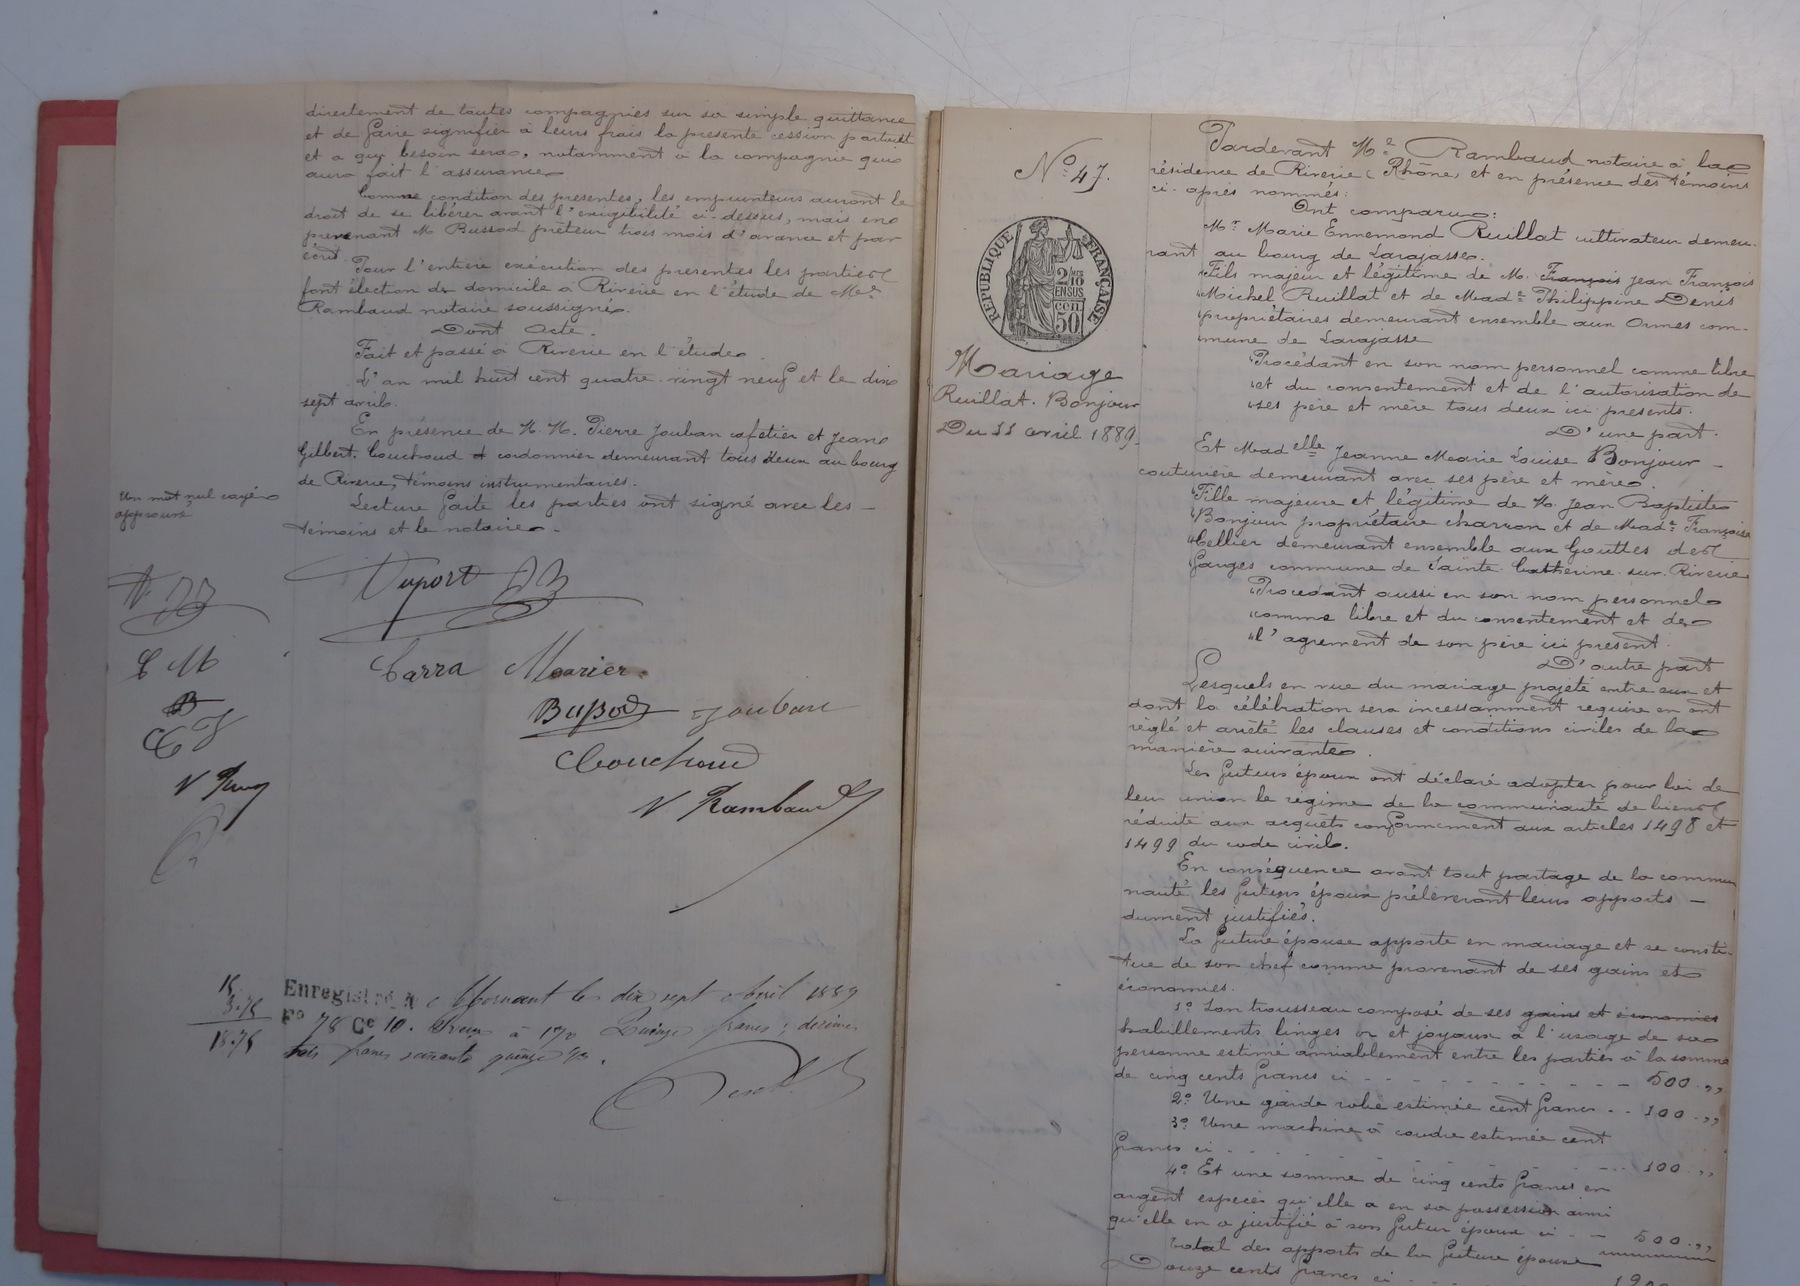 directement de toutes compagnies sur sa simple quittance
et de faire signifier à leurs frais la présente cession partout
et a qui besoin sera, notamment à la compagnie qui
aura fait l'assurance
Comme condition des présentes, les emprunteurs auront le
droit de se libérer avant l'exigibilité ci-dessus, mais en
prevenant M Bussod prêteur trois mois d'avance et par
écrit.
Pour l'entière exécution des présentes les parties
font élection de domicile à Riverie en l'étude de Me
Rambaud notaire soussigné.
Dont Acte.
Fait et passé à Riverie en l'étude
L'an mil huit cent quatre-vingt neuf et le dix
sept avril.
En présence de M.M. Pierre Jouban cafetier et Jean
Gilbert Couchoud cordonnier demeurant tous deux au bourg
de Riverie, témoins instrumentaires.
Un mot nul rayé
approuvé
Lecture faite les parties ont signé avec les
témoins et le notaire.
Duport
C M
Carra Mourier
Bussod Jouban
Couchoud
N Rambaud
15
3.75
18.75
Enregistré à Mornant le dix sept Avril 1889
Fo 78 Ce 10. Reçu à Quinze francs; décimes
trois francs soixante quinze
No 47.
REPUBLIQUE FRANÇAISE
2/10
EN SUS
50 cen
Mariage
Ruillat. Bonjour
Du 11 avril 1889.
Pardevant Me Rambaud notaire à la
résidence de Riverie (Rhône) et en présence des témoins
ci-après nommés:
Ont comparu:
Mr Marie Ennemond Ruillat cultivateur demeu-
rant au bourg de Larajasse.
Fils majeur et légitime de M. François Jean François
Michel Ruillat et de Made Philippine Denis
propriétaires demeurant ensemble aux Ormes com-
mune de Larajasse
Procédant en son nom personnel comme libre
et du consentement et de l'autorisation de
ses père et mère tous deux ici présents.
D'une part.
Et Madelle Jeanne Marie Louise Bonjour
couturière demeurant avec ses père et mère.
Fille majeure et légitime de M. Jean Baptiste
Bonjour propriétaire charron et de Made Françoise
Cellier demeurant ensemble aux Gouttes des
Farges commune de Sainte Catherine sur Riverie
Procédant aussi en son nom personnel
comme libre et du consentement et de
l'agrément de son père ici présent.
D'autre part
Lesquels en vue du mariage projeté entre eux et
dont la célébration sera incessamment requise en ont
règlé et arrêté les clauses et conditions civiles de la
manière suivante.
Les futurs époux ont déclaré adopter pour loi de
leur union le régime de la communauté de biens
réduite aux acquêts conformément aux articles 1498 et
1499 du code civil.
En conséquence avant tout partage de la commu
nauté les futurs époux prélèveront leurs apports
dument justifiés.
La future épouse apporte en mariage et se consti-
tue de son chef comme provenant de ses gains et
économies.
1o Son trousseau composé de ses gains et économies
habillements linges or et joyaux à l'usage de sa
personne estimé amiablement entre les parties à la somme
de cinq cents francs ci 500 ,,
2o Une garde robe estimée cent francs 100 ,,
3o Une machine à coudre estimée cent
francs ci 100 ,,
4o Et une somme de cinq cents francs en
argent espèces qu'elle a en sa possession ainsi
qu'elle en a justifié à son futur époux ci 500 ,,
Total des apports de la future épouse
Douze cents francs ci